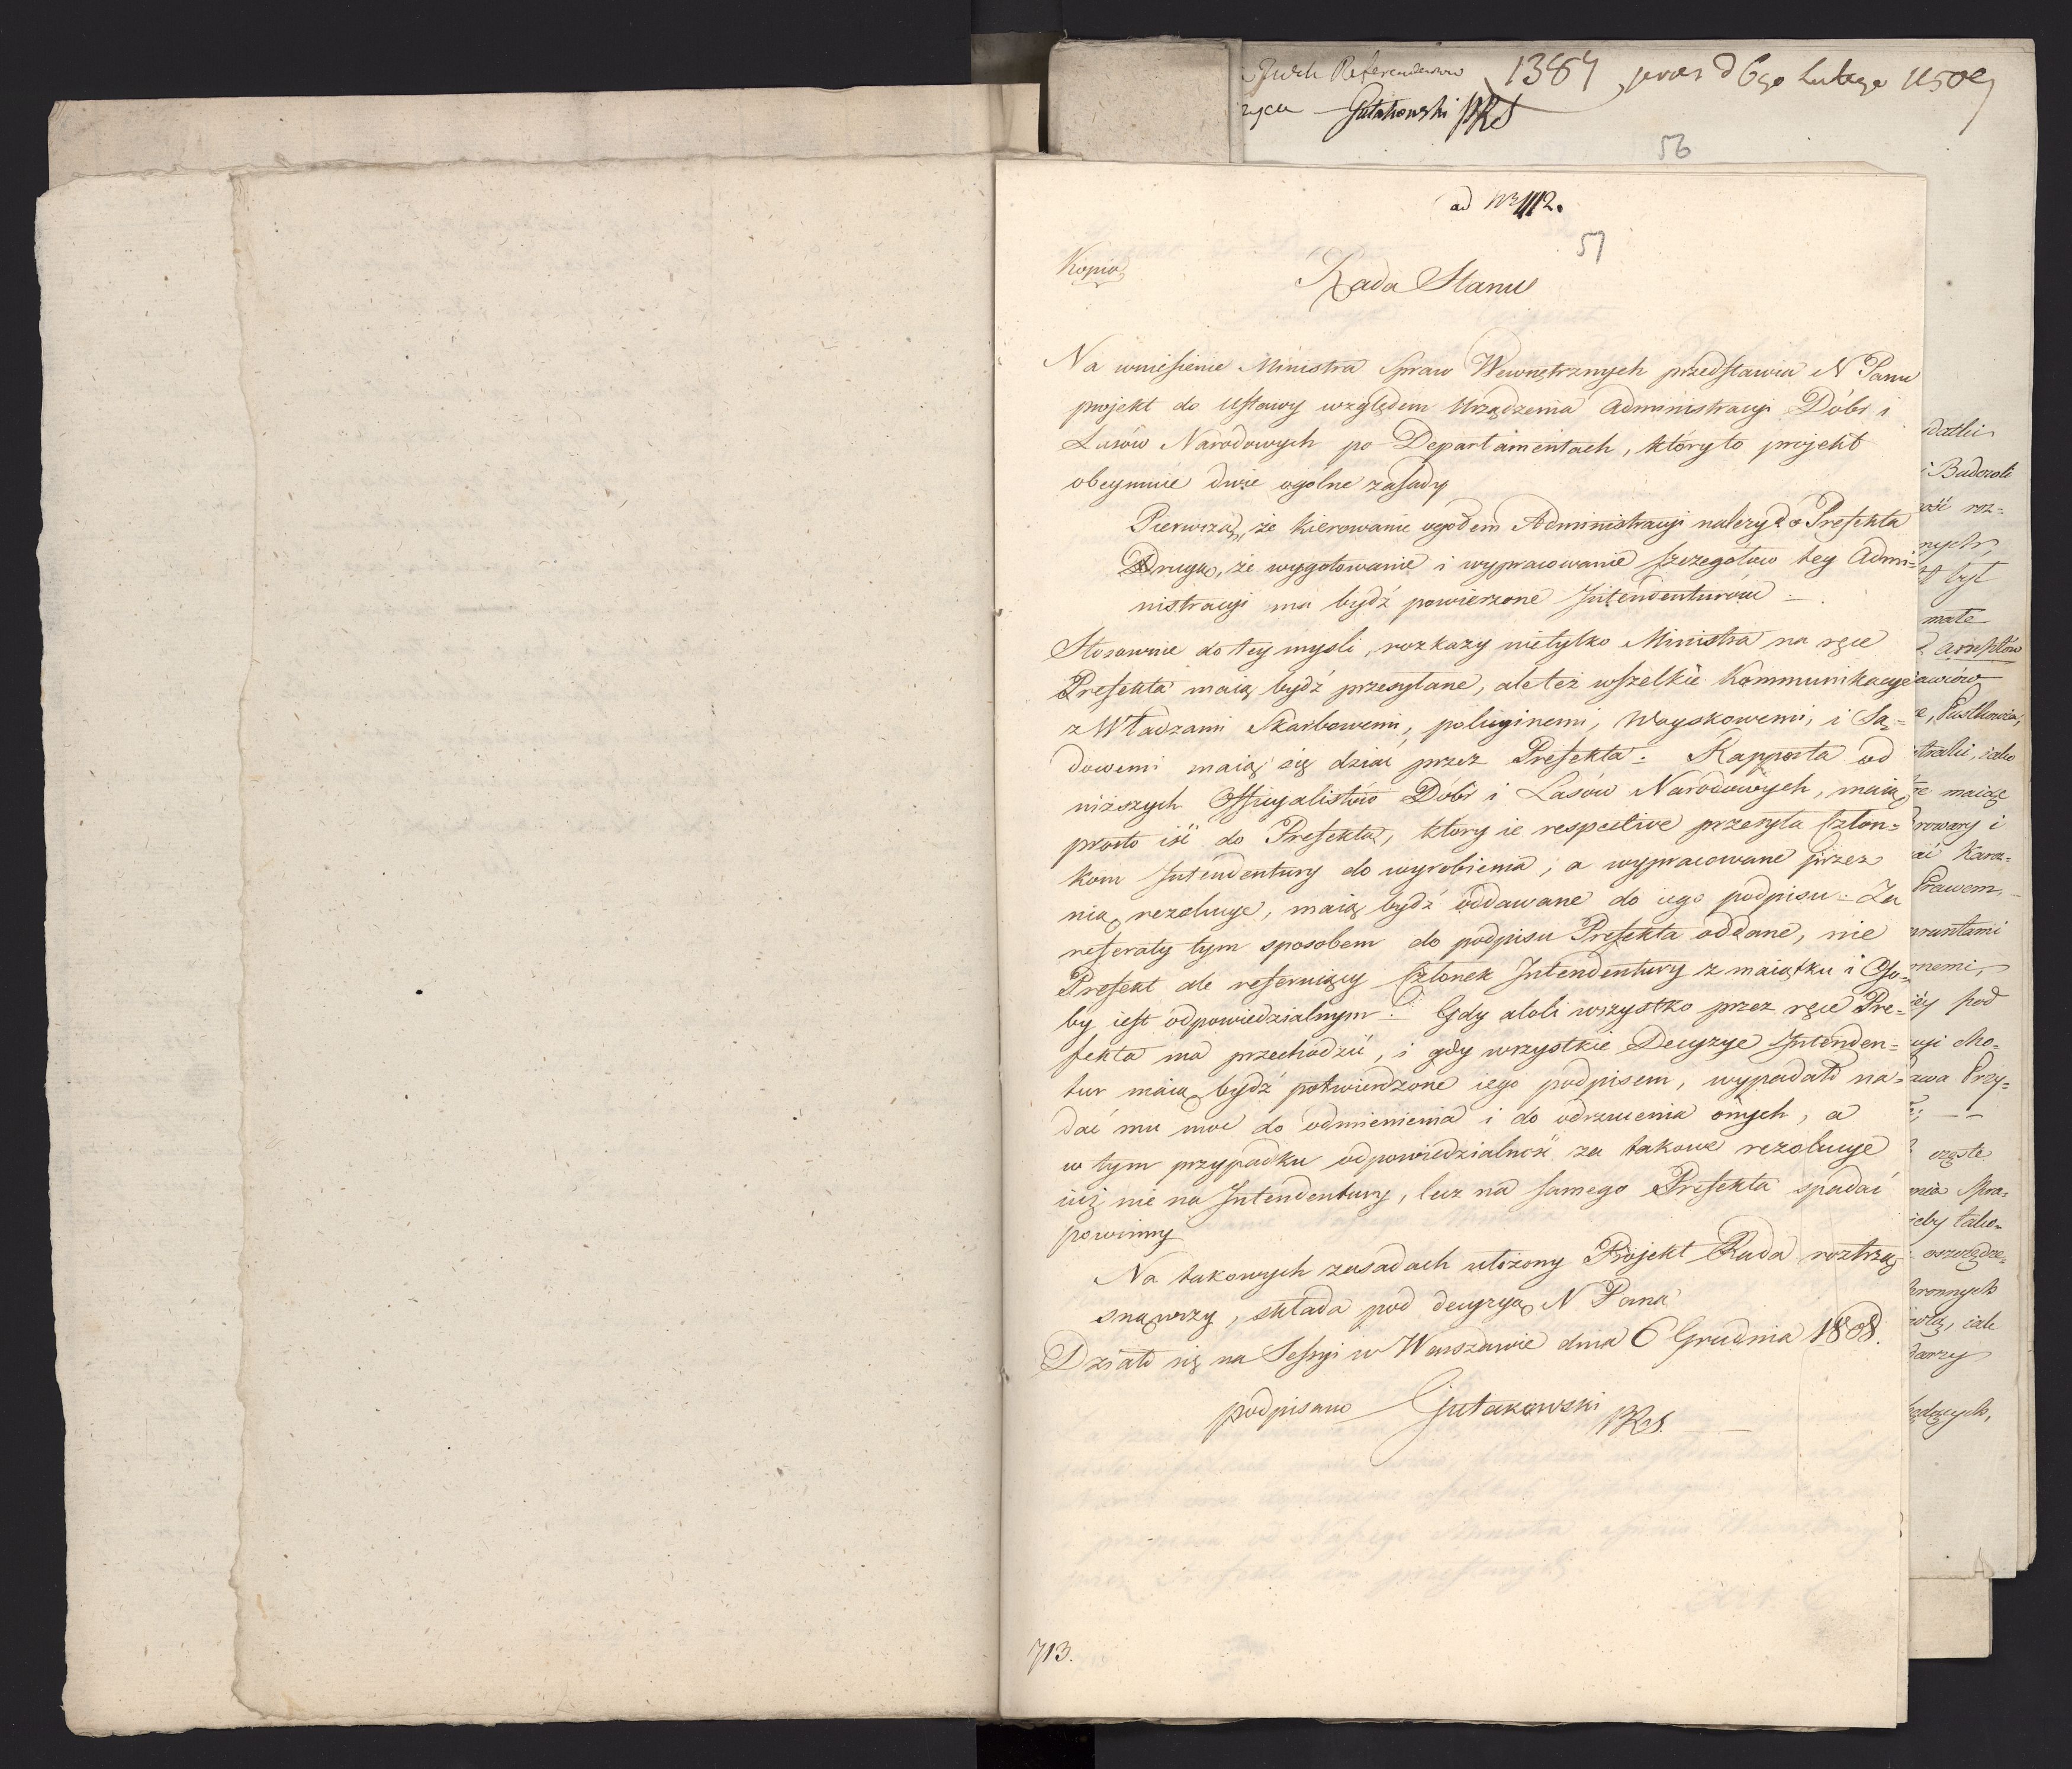 1384 prod 6go Lutego
Gutakowski PRS
56
ad Nr 1112.
51
Kopia
Rada Stanu
Na wniesienie Ministra Spraw Wewnętrznych przedstawia N Panu
projekt do Ustawy względem Urządzenia Administracyi Dóbr i
Lasów Narodowych po Departamentach, który to projekt
obeymuie dwie ogólne zasady
Pierwsza, że kierowanie ogółem Administracyi należy do Prefekta
Druga, że wygotowanie i wypracowanie szczegołow tey Admi=
nistracyi ma bydź powierzone Intendenturóm
Stosownie do tey mysli, rozkazy nietylko Ministra na ręce
Prefekta maią bydź przesyłane, ale też wszelkie Kommunikacye
z Władzami Skarbowemi, policyinemi, Woyskowemi, i Są=
dowemi maią się dziać przez Prefekta. Rapporta od
niższych Officyalistów Dóbr i Lasów Narodowych, maią
prosto iść do Prefekta, ktory ie respective przesyła Człon=
kom Intendentury do wyrobienia, a wypracowane przez
nią rezolucye, maią bydź oddawane do iego podpisu. Za
referaty tym sposobem do podpisu Prefekta oddane, nie
Prefekt ale referuiący Członek Intendentury z maiątku i Oso=
by iest odpowiedzialnym. Gdy atoli wszystko przez ręce Pre=
fekta ma przechodzić, i gdy wszystkie Decyzye Intenden=
tur maią bydź potwierdzone iego podpisem, wypadało na=
dać mu moc do odmienienia i do odrzucenia onych, a
w tym przypadku odpowiedzialność za takowe rezolucye
iuż nie na Intendentury, lecz na samego Prefekta spadać
powinny
Na takowych zasadach ułożony Projekt Rada roztrzą
snąwszy, składa pod decyzyą N Pana
Działo się na Sessyi w Warszawie dnia 6 Grudnia 1808.
podpisano Gutakowski PRS.
713.
roź=
był
małe
Pustkowia,
maiące
i
Prawem,
gruntami
pod
cho=
Przy=
częste
Spra=